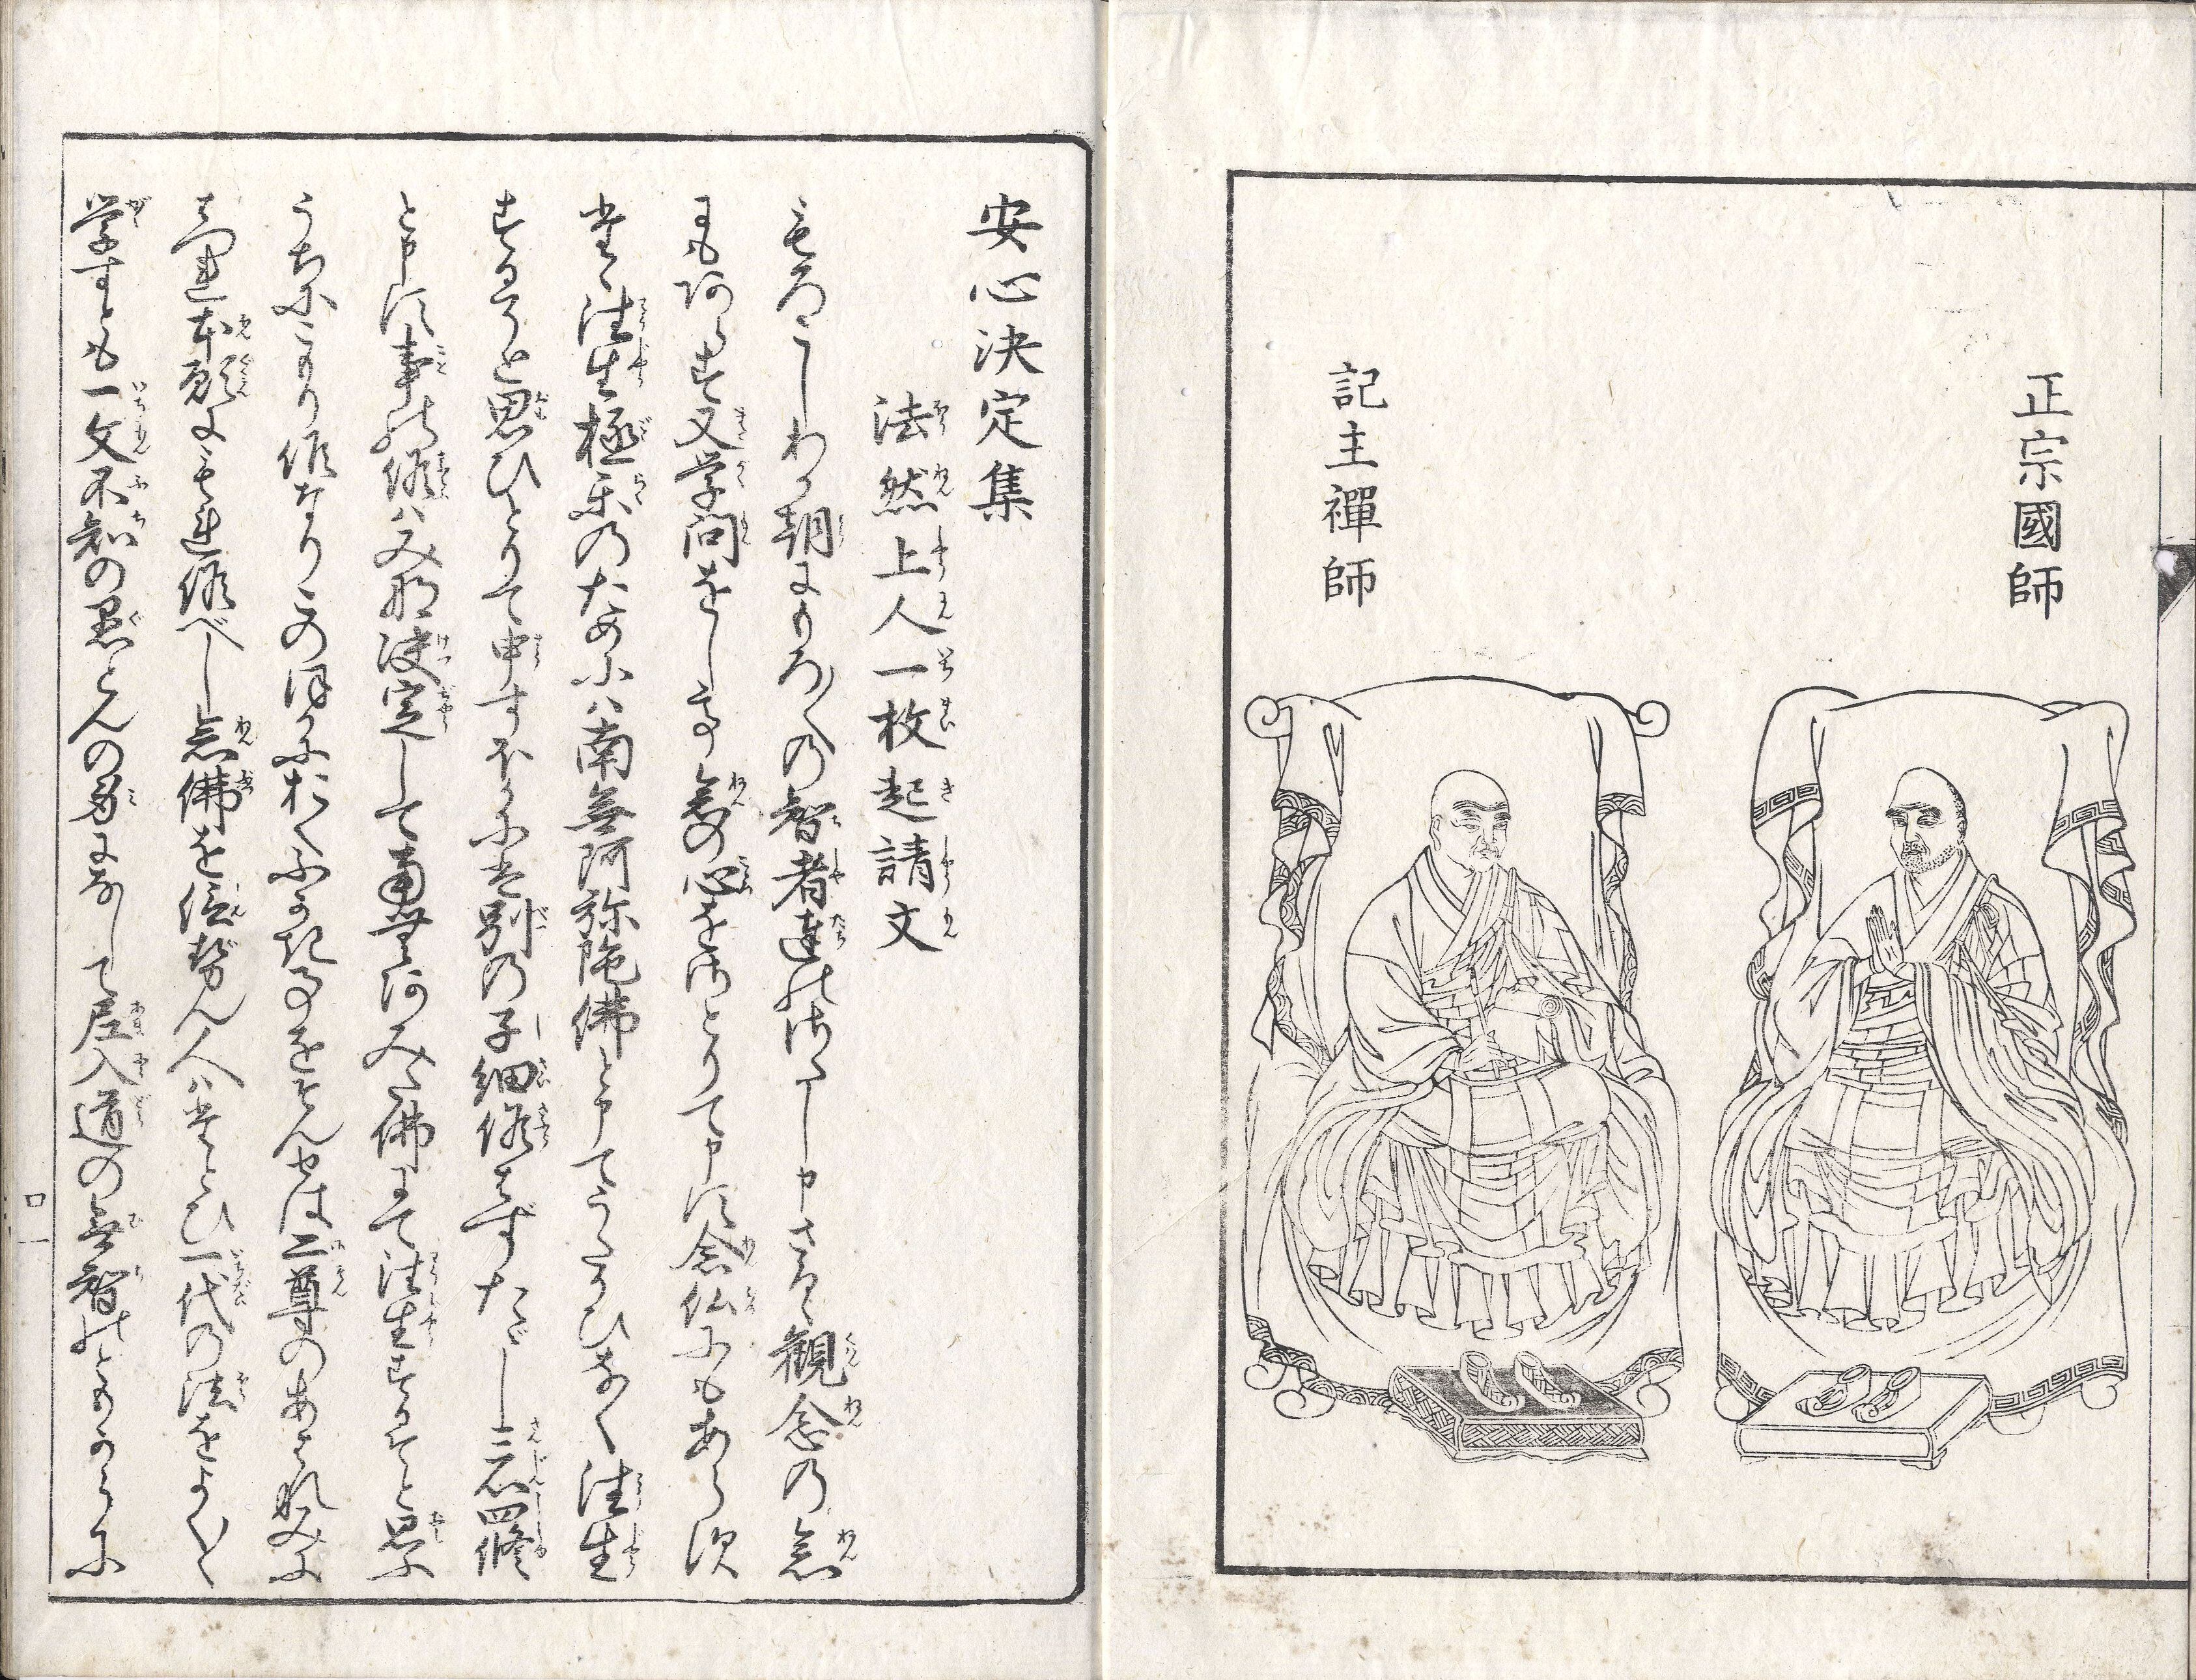 正宗國師
記主禪師
安心决定集
法然上人一枚起請文
もろこしわが朝にもろ〳〵の智者達の沙汰し申さるゝ観念の念
にもあらず又学问をして念の心をさとりて申す念仏にもあらず
たゞ往生極楽のためには南無阿弥陀佛と申てうたがひなく往生
するぞと思ひとりて申すほかには別の子細候はずたゞし三心四修
と申す事の候はみな决定して南無阿みだ佛にて往生するぞと思ふ
うちにこもり候なりこのほかにおくふかき事をぞんぜば二尊のあはれみに
はづれ本願にもれ候べし念佛を信ぜん人はたとひ一代の法をよく〳〵
学すとも一文不知の愚どんの身になして尼入道の無智のともがらに
口一